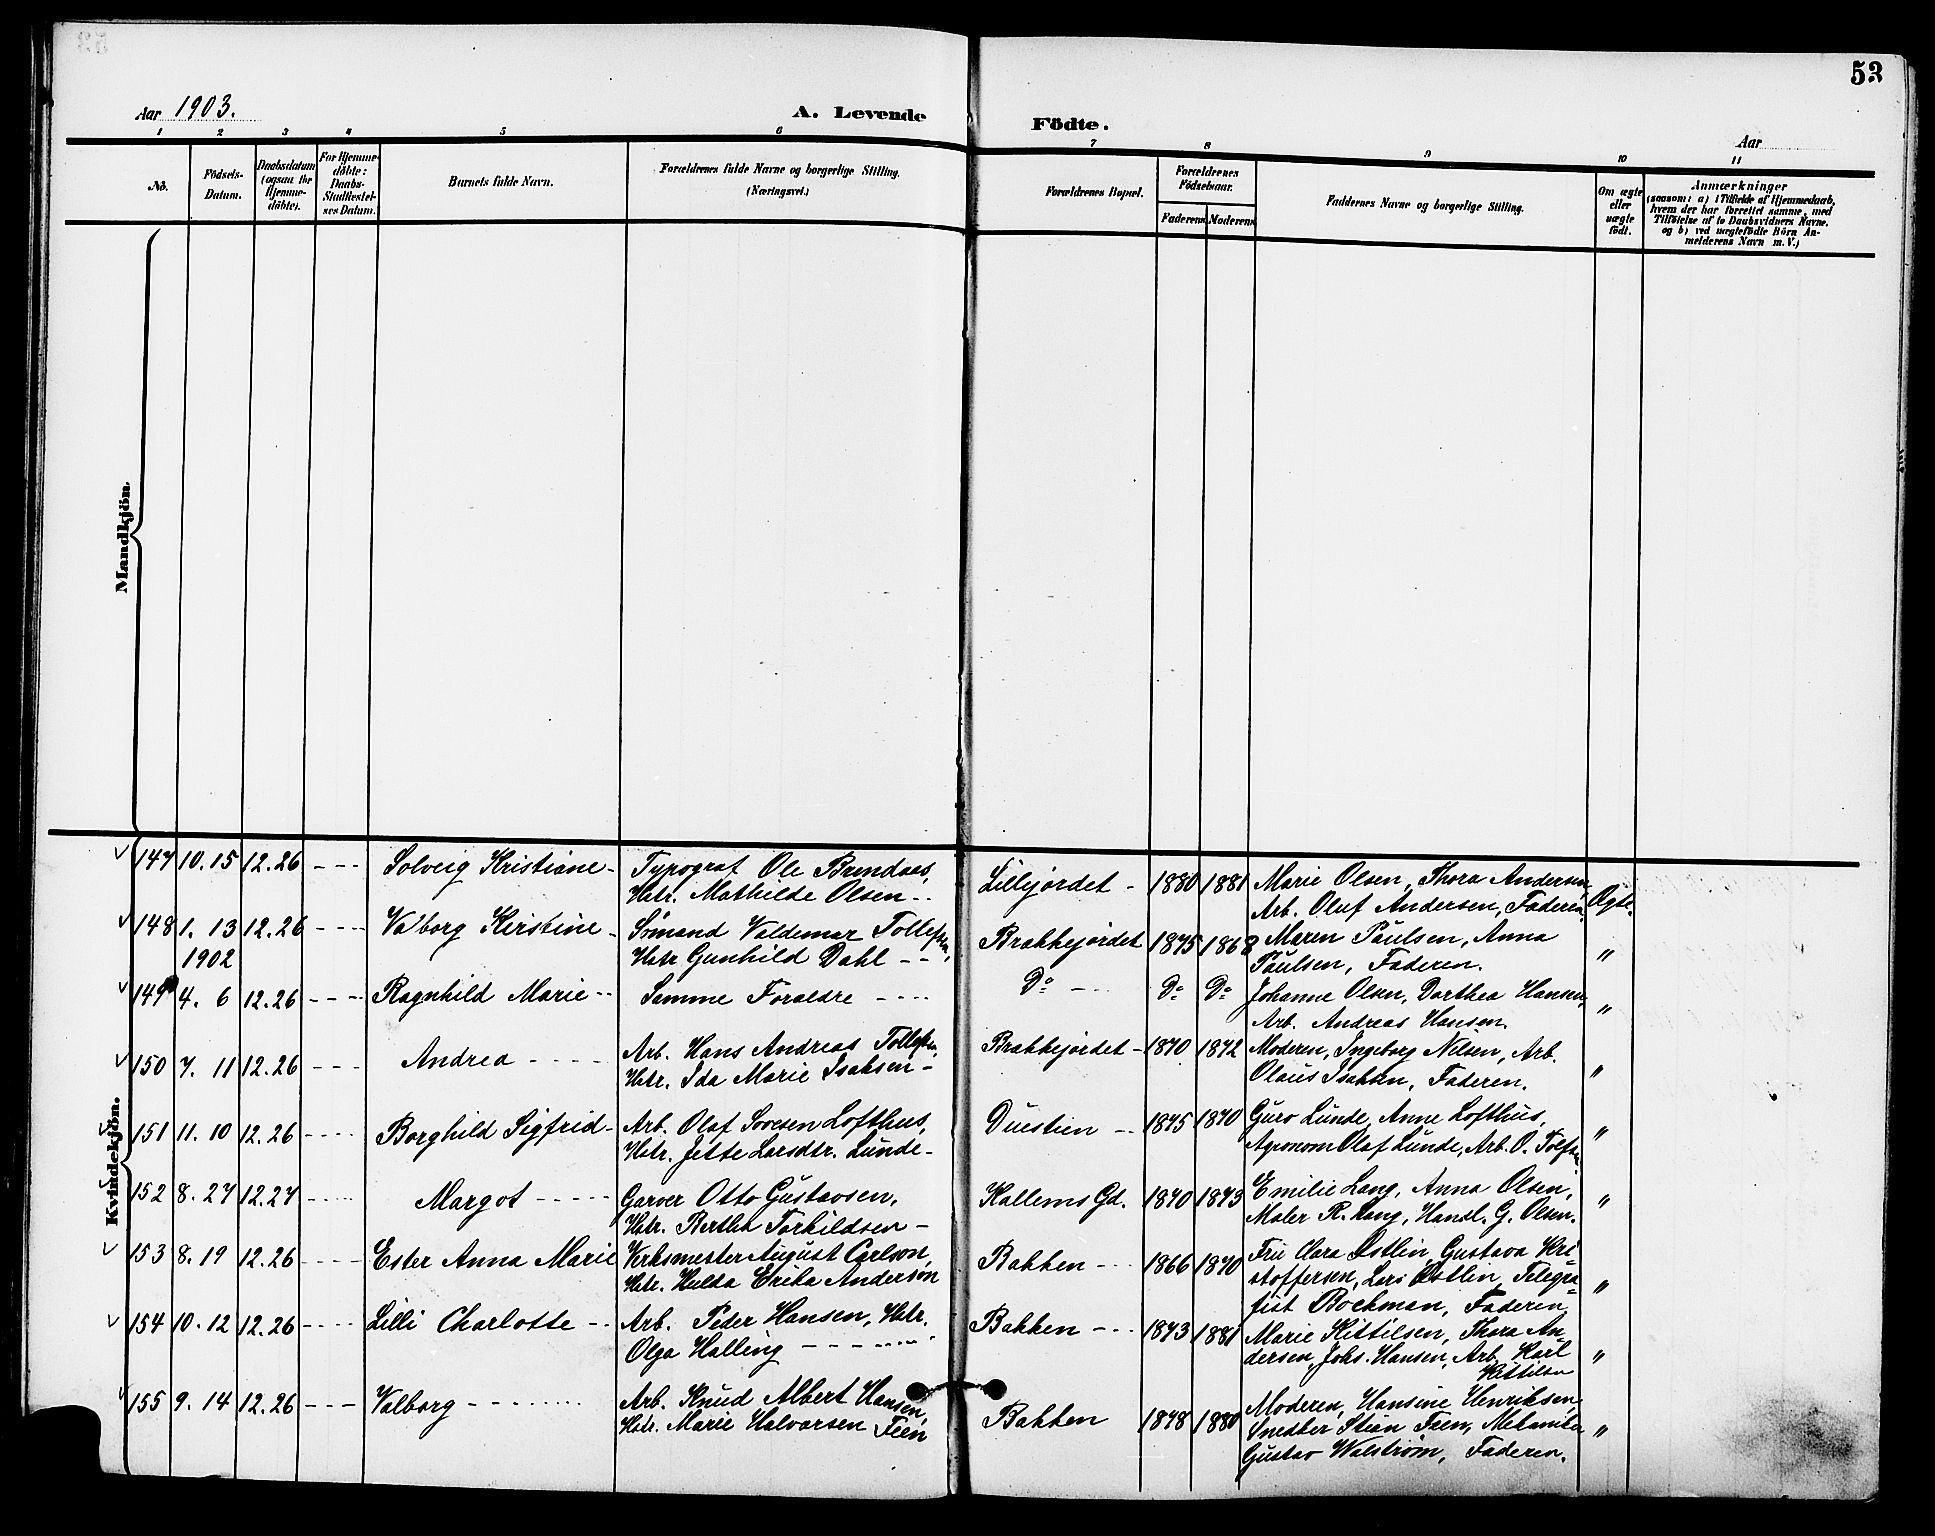 53
Aar 1903.
A. Levende
Födte.
Aar
1 2 3 4 5 6 7 8 9 10 11
No.
Födsels-
Datum.
Daabsdatum
(ogsaa for
Hjemme-
döbte).
For Hjemme-
döbte:
Daabs-
Stadfæstel-
ses Datum.
Barnets fulde Navn.
Forældrenes fulde Navne og borgerlige Stilling.
(Næringsvei.)
Forældrenes Bopæl.
Forældrenes
Födselsaar.
Faderens
Moderens
Faddernes Navne og borgerlige Stilling.
Om ægte
eller
uægte
födt.
Anmærkninger
(saasom: a) i Tilfælde af Hjemmedaab,
hvem der har forrettet samme, med
Tilföielse af to Daabsvidners Navne.
og b) ved uægtefödte Börn An-
melderens Navn m. V.)
Mandkjön.
Kvindekjön.
147 10. 15 12. 26 - - - Solveig Kristiane - Typograf Ole Brendaes,
Hstr. Mathilde Olsen - -
Lillejordet - 1880 1881 Marie Olsen, Thora Andersen
Arb. Oluf Andersen, Faderen. Ægte.
148 1. 13 12. 26 - - - Valborg Kirstine - Sömand Valdemar Tollefsen,
1902 Hstr Gunhild Dahl - -
Brakkejordet 1875 1868 Maren Paulsen, Anna
Paulsen, Faderen. "
149 4. 6 12. 26 - - - Ragnhild Marie - - Samme Foraldre - - - -
Do - - Do Do Johanne Olsen, Dorthea Hansen,
Arb. Andreas Hansen. "
150 7. 11 12. 26 - - - Andrea - - - - Arb. Hans Andreas Tollefsen,
Hstr. Ida Marie Isaksen -
Brakkejordet - 1870 1872 Moderen, Ingeborg Nilsen, Arb.
Olaus Isaksen, Faderen. "
151 11. 10 12. 26 - - - - Borghild Sigfrid - Arb. Olaf Sovesen Lofthus,
Hstr. Jette Larsdtr. Lunde -
Duestien - - 1875 1870 Guro Lunde, Anne Lofthus,
Agronom Olaf Lunde, Arb. O. Tolfsen "
152 8. 27 12. 27 - - - - Margot - - - - - Garver Otto Gustavsen,
Hstr. Bertha Torkildsen -
Kallems Gd. 1870 1873 Emilie Lang, Anna Olsen,
Maler R. Lang, Handl. G. Olsen. "
153 8. 19 12. 26 - - - - Ester Anna Marie Verksmester August Carlson,
Hstr. Hulda Erika Anderson
Bakken - - - 1866 1870 Fru Clara Östlin, Gustava Kri-
stoffersen, Lars Östlin, Telegra-
fist Bockman, Faderen, "
154 10. 12 12. 26 - - - - Lilli Charlotte - - Arb. Peder Hansen, Hstr.
Olga Halling - - - - - -
Bakken - - - 1873 1881 Marie Kittilsen, Thora An-
dersen, Johs. Hansen, Arb. Karl
Kittilsen "
155 9. 14 12. 26 - - - Valborg - - - - - Arb. Knud Albert Hansen,
Hstr. Marie Halvorsen Feen
Bakken 1878 1880 Moderen, Hansine Henriksen,
Snedker Stian Feen, Mekaniker
Gustav Walström, Faderen. "